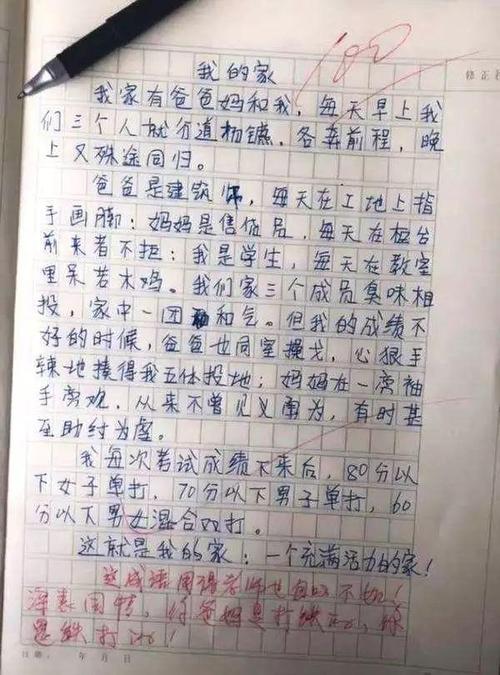 100
修正
我的家
我家有爸爸妈和我，每天早上我
们三个人就分道杨镳，各奔前程，晚
上又殊途同归。
爸爸是建筑师，每天在工地上指
手画脚；妈妈是售货员，每天在柜台
前来者不拒；我是学生，每天在教室
里呆若木鸡。我们家三个成员臭味相
投，家中一团和气。但我的成绩不
好的时候，爸爸也同室操戈，心狠手
辣地揍得我五体投地；妈妈在一旁袖
手旁观，从来不曾见义勇为，有时甚
至助纣为虐。
我每次考试成绩下来后，80分以
下女子单打，70分以下男子单打，60
分以下男女混合双打。
这就是我的家：一个充满活力的家！
这成语用得老师也自叹不如！
浑素国情，你爸妈是打铁的，你
是铁打的！
日期： 年 月 日